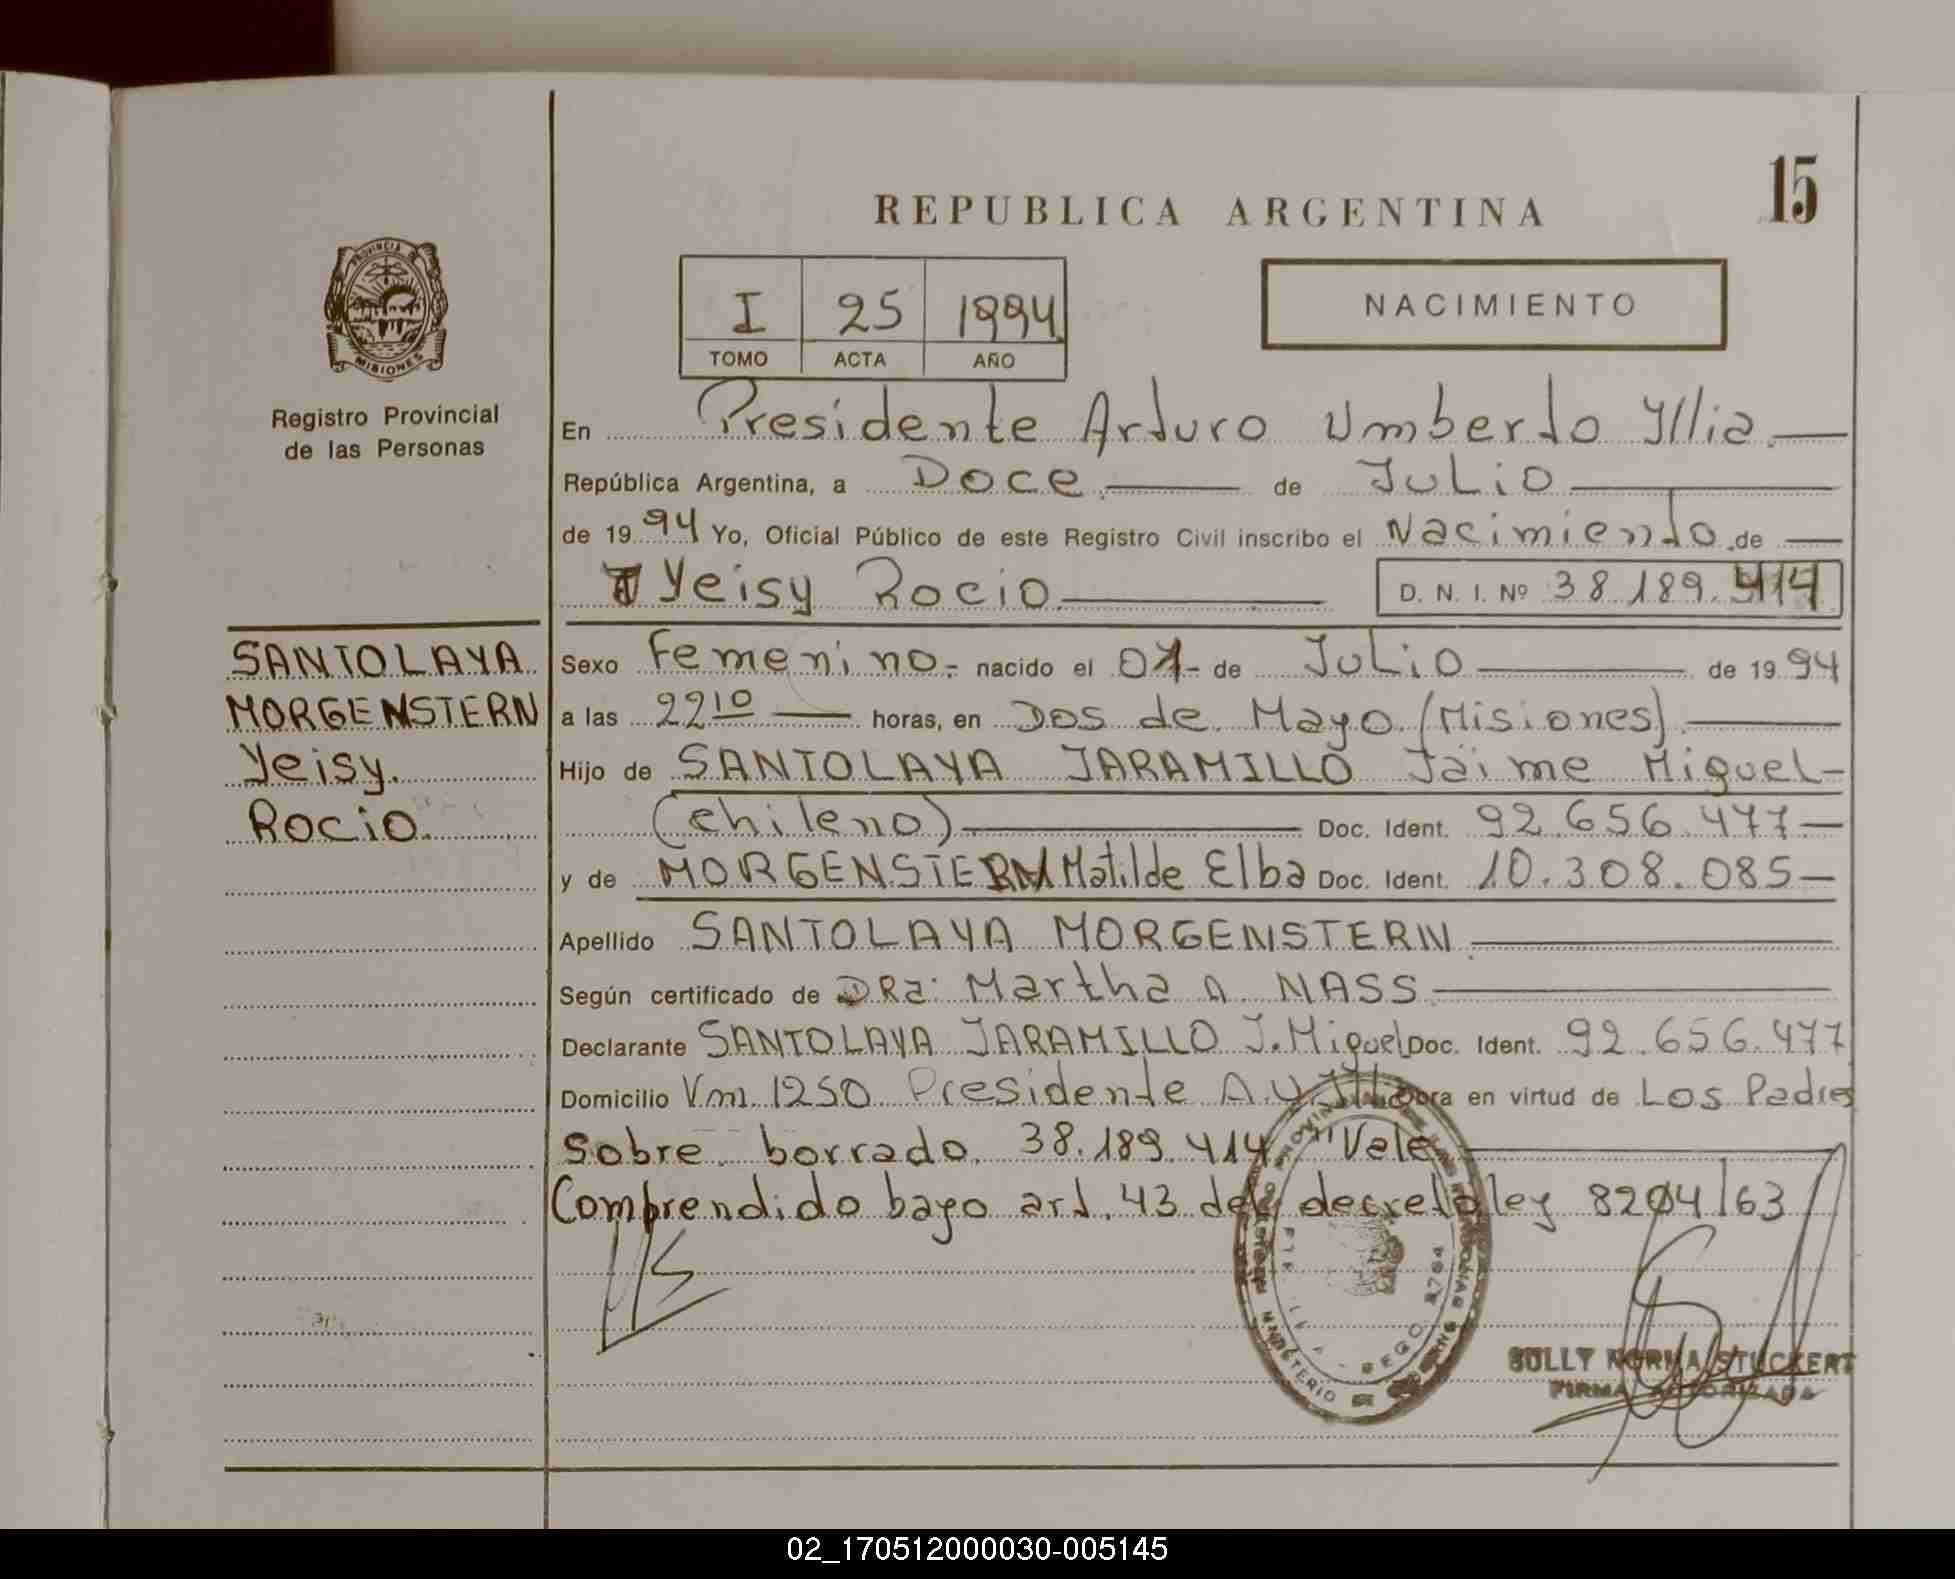 15
REPUBLICA ARGENTINA
PROVINCIA DE
MISIONES
I 25 1994
TOMO ACTA AÑO
NACIMIENTO
Registro Provincial
de las Personas
En Presidente Arturo Umberto Yllia.
República Argentina, a Doce de Julio
de 19 94 Yo, Oficial Público de este Registro Civil inscribo el Nacimiento de
Yeisy Rocio D. N. I. Nº 38.189.414
SANTOLAYA
MORGENSTERN
Yeisy.
Rocio.
Sexo Femenino.- nacido el 07- de Julio de 19 94
a las 22 10 horas, en Dos de Mayo (Misiones).
Hijo de SANTOLAYA JARAMILLO Jaime Miguel-
(chileno) Doc. Ident. 92.656.477-
y de MORGENSTERN Matilde Elba Doc. Ident. 10.308.085-
Apellido SANTOLAYA MORGENSTERN.
Según certificado de DRa. Martha A. NASS
Declarante SANTOLAYA JARAMILLO J. Miguel Doc. Ident. 92.656.477
Domicilio Vm. 1250 Presidente A.U. Obra en virtud de Los Padres
Sobre borrado 38.189.414 "Vale
Comprendido bayo art. 43 del decreto ley 8204/63
MINISTERIO DE
SULLY NORMA STUCKERT
FIRMA AUTORIZADA
02_170512000030-005145